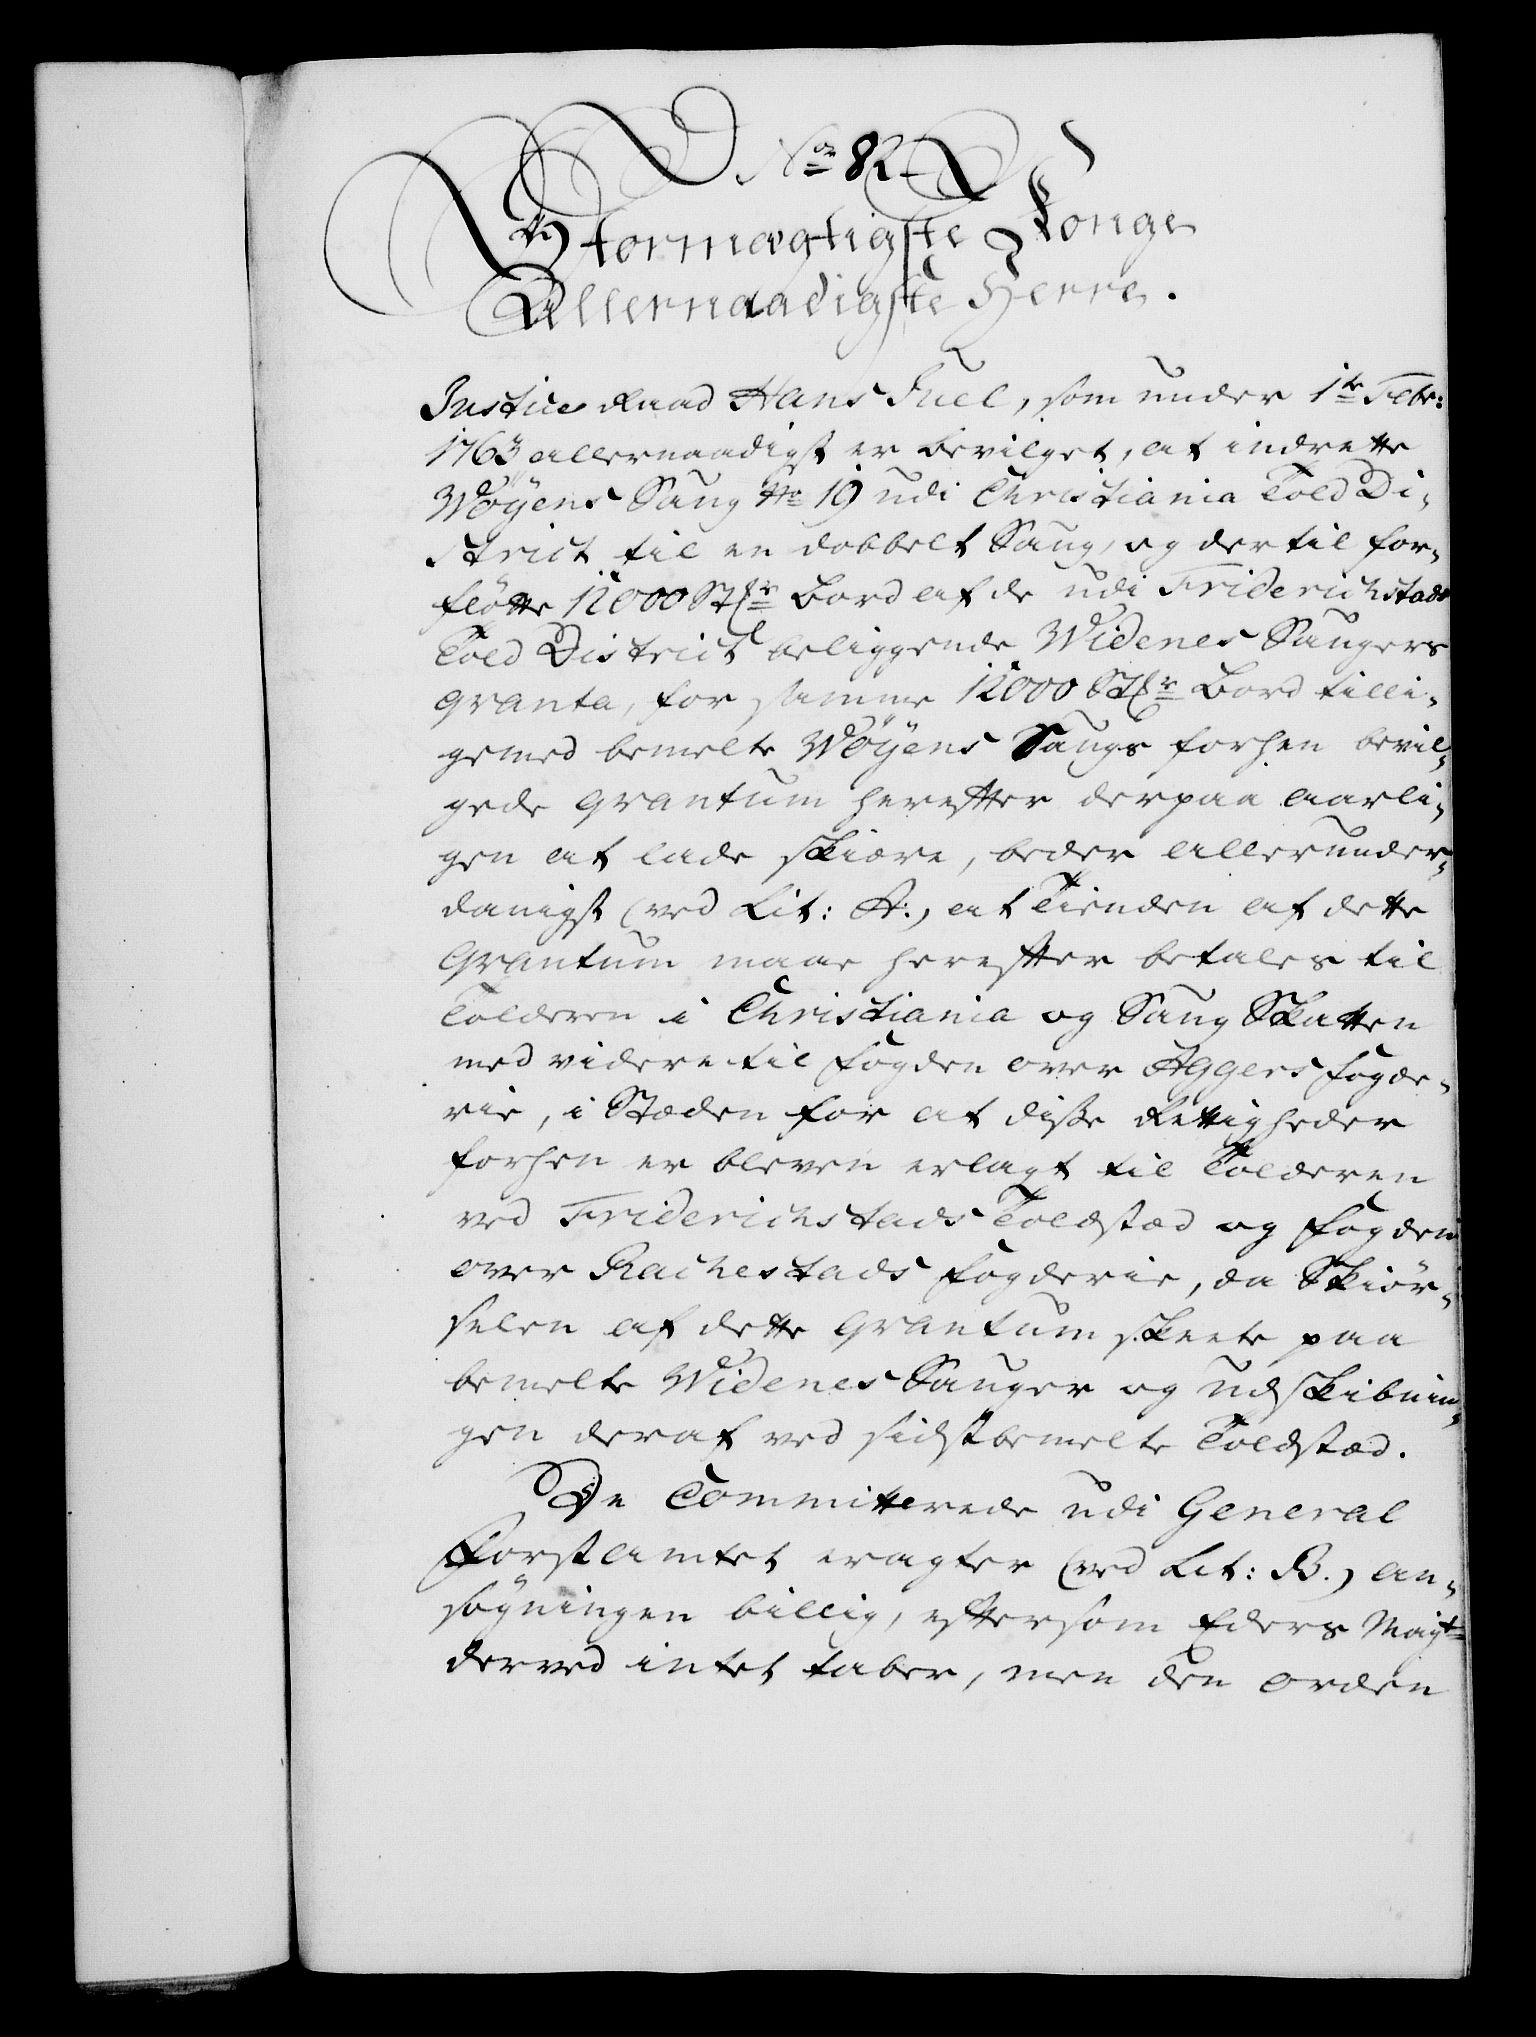 No 82.
Stormægtigste Konge
Allernaadigste Herre.
Justice Raad Hans Juel, som under 1te Febr:
1763 allernaadigst er bevilget, at indrette
Wøyens Saug No 19 udi Christiania Told Di-
strict til en dobbelt Saug, og dertil for-
fløtte 12000 Stkr Bord af de udi Friderichstads
Told District beliggende Widenes Saugers
qvanta, for samme 12000 Stkr Bord tilli-
gemed bemelte Wøyens Saugs forhen bevil-
gede qvantum herefter derpaa aarli-
gen at lade skiære, beder allerunder-
danigst (ved Lit: A.) at Tienden af dette
Qvantum maae herefter betales til
Tolderen i Christiania og Saug Skatten
med videre til fogden over Aggers fogde-
rie, i Stæden for at disse Rettigheder
forhen er bleven erlagt til Tolderen
ved Friderichstads Toldstæd og fogden
over Rachestads fogderie, da Skiør-
selen af dette qvantum skeete paa
bemelte Widenes Sauger og udskibnin-
gen deraf ved sidstbemelte Toldstæd.
De Committerede udi General
Forstamtet eragter (ved Lit: B.) an-
søgningen billig, eftersom Eders Mayt
derved intet taber, men den orden